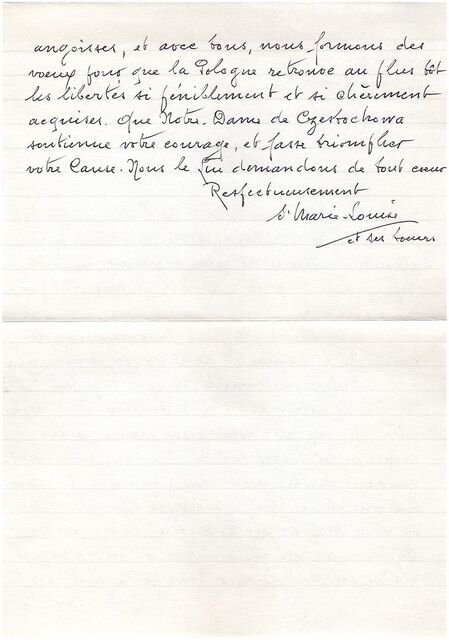 angoisses, et avec tous, nous formons des
voeux pour que la Pologne retrouve au plus tôt
les libertés si péniblement et si chèrement
acquises. Que Notre-Dame de Czestochowa
soutienne votre courage, et fasse triompher
votre Cause. Nous le Lui demandons de tout coeur
Respectueusement
Sr Marie-Louise
et ses soeurs